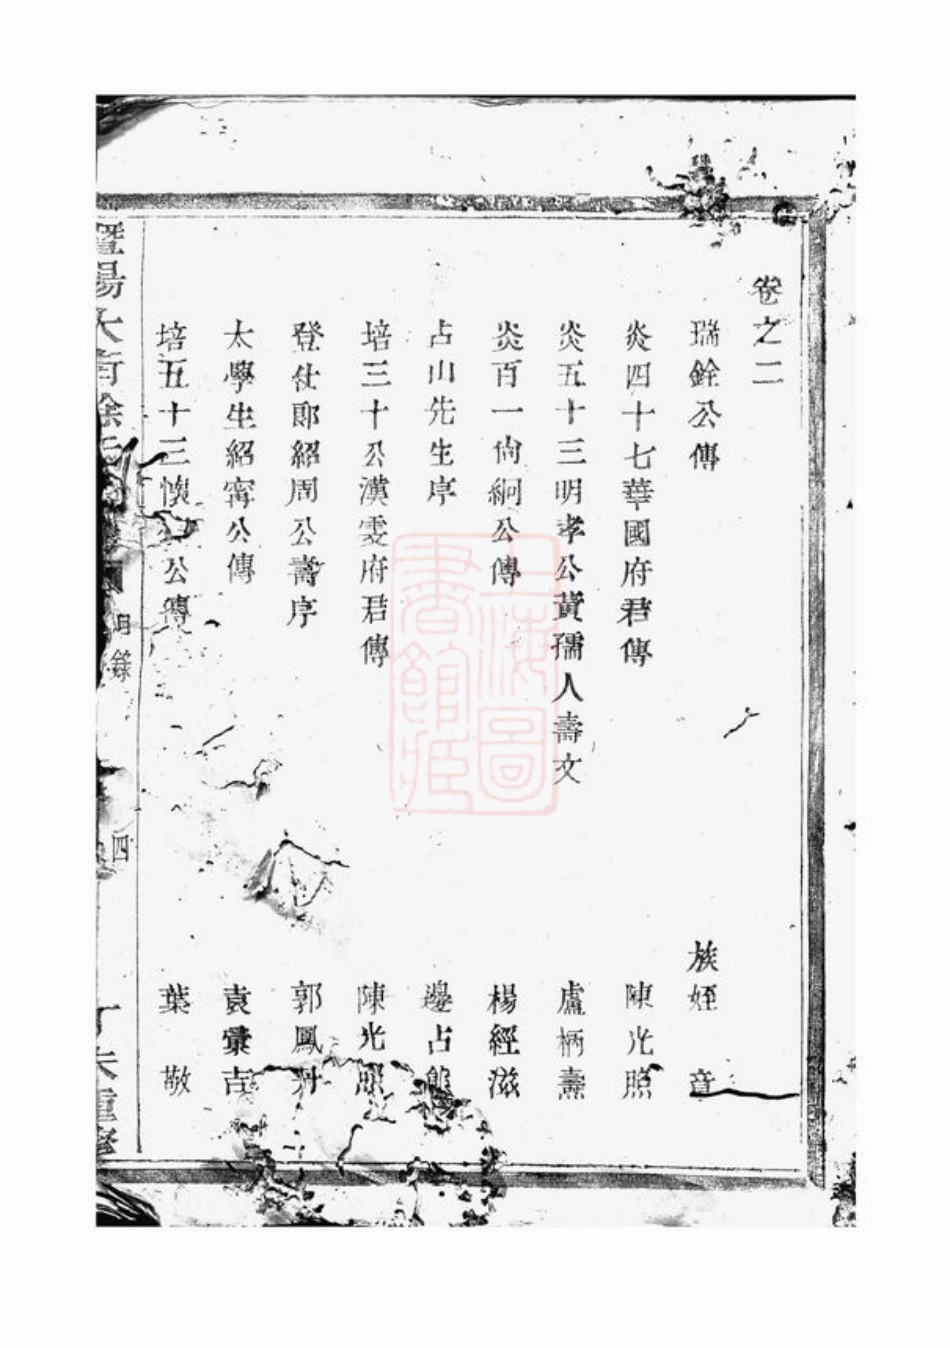 卷之二
瑞銓公傳 族姪 章
炎四十七華國府君傳 陳光照
炎五十三明孝公黃孺人壽文 盧柄燾
炎百一尚絅公傳 楊經滋
占山先生序 邊占
培三十公漢雯府君傳 陳光照
登仕郎紹周公壽序 郭鳳
太學生紹寗公傳 袁彙吉
培五十三懷公傳 葉敬
暨陽大
目錄
四
丁未重修
上海圖書館藏